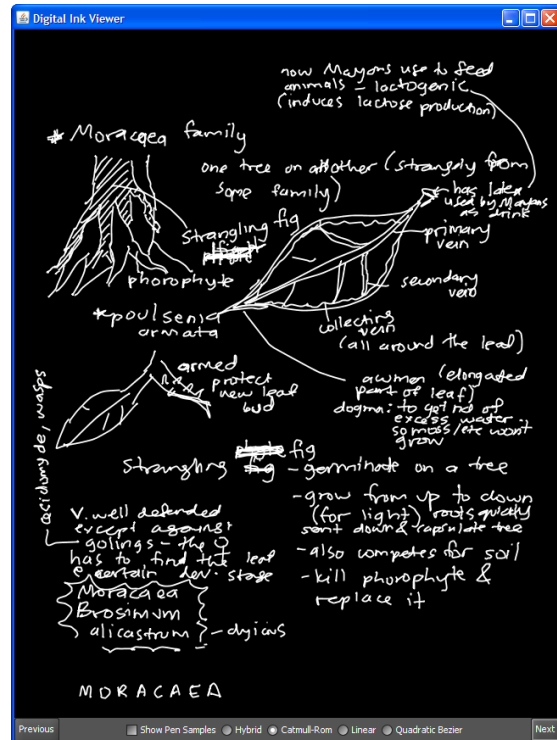 Digital Ink Viewer
now Mayans use to feed
animals - lactogenic
(induces lactose production)
* Moracaea family
one tree on another (strangely from
same family)
has latex
used by Mayans
as drink
strangling fig
primary
vein
phorophyte
secondary
vein
*poulsenia
armata
collecting
vein
(all around the leaf)
armed
protect
new leaf
bud
(elongated
part of leaf)
dogma: to get rid of
excess water
so moss/etc won't
grow
wasps
Strangling fig - germinate on a tree
- grow from up to down
(for light) roots quickly
sent down &
tree
- also competes for soil
- kill phorophyte &
replace it
v. well defended
except against
golings - the ♀
has to find the leaf
@ certain dev. stage
Moracaea
Brosimum
alicastrum
MORACAEA
Previous
Show Pen Samples Hybrid Catmull-Rom Linear Quadratic Bezier
Next